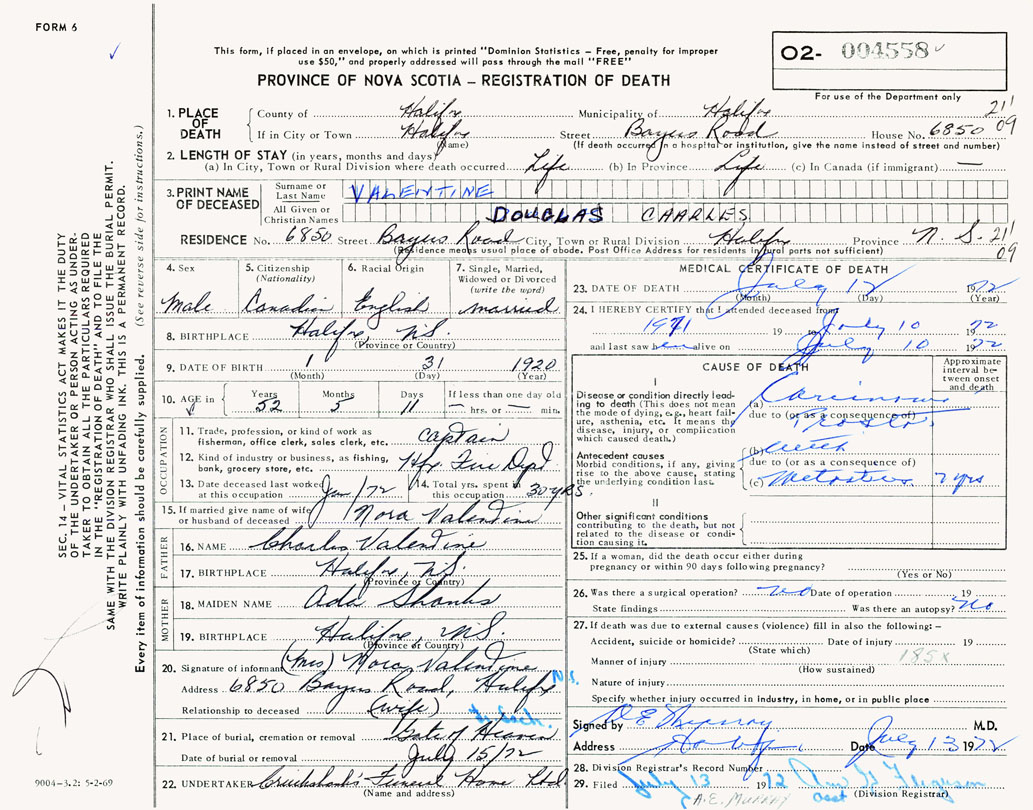 FORM 6
This form, if placed in an envelope, on which is printed "Dominion Statistics – Free, penalty for improper
use $50," and properly addressed will pass through the mail "FREE"
O2- 004558
PROVINCE OF NOVA SCOTIA – REGISTRATION OF DEATH
For use of the Department only
1. PLACE OF DEATH
County of Halifx Municipality of Halifx 211
If in City or Town Halifx Street Bayers Road House No. 6850 09
(Name) (If death occurred in a hospital or institution, give the name instead of street and number)
2. LENGTH OF STAY (in years, months and days)
(a) In City, Town or Rural Division where death occurred Life (b) In Province Life (c) In Canada (if immigrant) —
3. PRINT NAME OF DECEASED
Surname or Last Name VALENTINE
All Given or Christian Names DOUGLAS CHARLES
RESIDENCE No. 6850 Street Bayers Road City, Town or Rural Division Halifx Province N. S. 211
09
(Residence means usual place of abode. Post Office Address for residents in rural parts not sufficient)
4. Sex Male
5. Citizenship (Nationality) Canadian
6. Racial Origin English
7. Single, Married, Widowed or Divorced (write the word) married
8. BIRTHPLACE Halifx, N.S.
(Province or Country)
9. DATE OF BIRTH 1 31 1920
(Month) (Day) (Year)
10. AGE in Years 52 Months 5 Days 11 If less than one day old — hrs. or — min.
OCCUPATION
11. Trade, profession, or kind of work as fisherman, office clerk, sales clerk, etc. Captain
12. Kind of industry or business, as fishing, bank, grocery store, etc. Hfx Fire Dept
13. Date deceased last worked at this occupation Jan/72 14. Total yrs. spent in this occupation 30 YRS.
15. If married give name of wife or husband of deceased Nora Valentine
FATHER
16. NAME Charles Valentine
17. BIRTHPLACE Halifx, N.S.
(Province or Country)
MOTHER
18. MAIDEN NAME Ada Shanks
19. BIRTHPLACE Halifx, N.S.
(Province or Country)
20. Signature of informant (Mrs) Nora Valentine
Address 6850 Bayers Road, Halifx N.S.
Relationship to deceased (wife)
21. Place of burial, cremation or removal Gate of Heaven
Date of burial or removal July 15/72
22. UNDERTAKER Cruikshank's Funeral Home Ltd.
(Name and address)
MEDICAL CERTIFICATE OF DEATH
23. DATE OF DEATH July 12 1972
(Month) (Day) (Year)
24. I HEREBY CERTIFY that I attended deceased from
1971 19 to July 10 19 72
and last saw h alive on July 10 19 72
CAUSE OF DEATH
Approximate interval between onset and death
I
Disease or condition directly leading to death (This does not mean the mode of dying, e.g., heart failure, asthenia, etc. It means the disease, injury, or complication which caused death.)
(a) Carcinoma
due to (or as a consequence of)
Prostate
Antecedent causes
Morbid conditions, if any, giving rise to the above cause, stating the underlying condition last.
(b) with
due to (or as a consequence of)
(c) Metastases 2 yrs
II
Other significant conditions contributing to the death, but not related to the disease or condition causing it.
25. If a woman, did the death occur either during pregnancy or within 90 days following pregnancy?
(Yes or No)
26. Was there a surgical operation? no Date of operation 19
State findings Was there an autopsy? No
27. If death was due to external causes (violence) fill in also the following: –
Accident, suicide or homicide? Date of injury 19
(State which)
Manner of injury 185x
(How sustained)
Nature of injury
Specify whether injury occurred in industry, in home, or in public place
Signed by A E Murray M.D.
Address Date July 13 1972
28. Division Registrar's Record Number
29. Filed July 13 1972 Ferguson
A.E. MURRAY asst (Division Registrar)
SEC. 14 – VITAL STATISTICS ACT MAKES IT THE DUTY
OF THE UNDERTAKER OR PERSON ACTING AS UNDER-
TAKER TO OBTAIN ALL THE PARTICULARS REQUIRED
IN THE "REGISTRATION OF DEATH" AND TO FILE THE
SAME WITH THE DIVISION REGISTRAR WHO SHALL ISSUE THE BURIAL PERMIT.
WRITE PLAINLY WITH UNFADING INK. THIS IS A PERMANENT RECORD.
Every item of information should be carefully supplied. (See reverse side for instructions.)
9004-3.2: 5-2-69